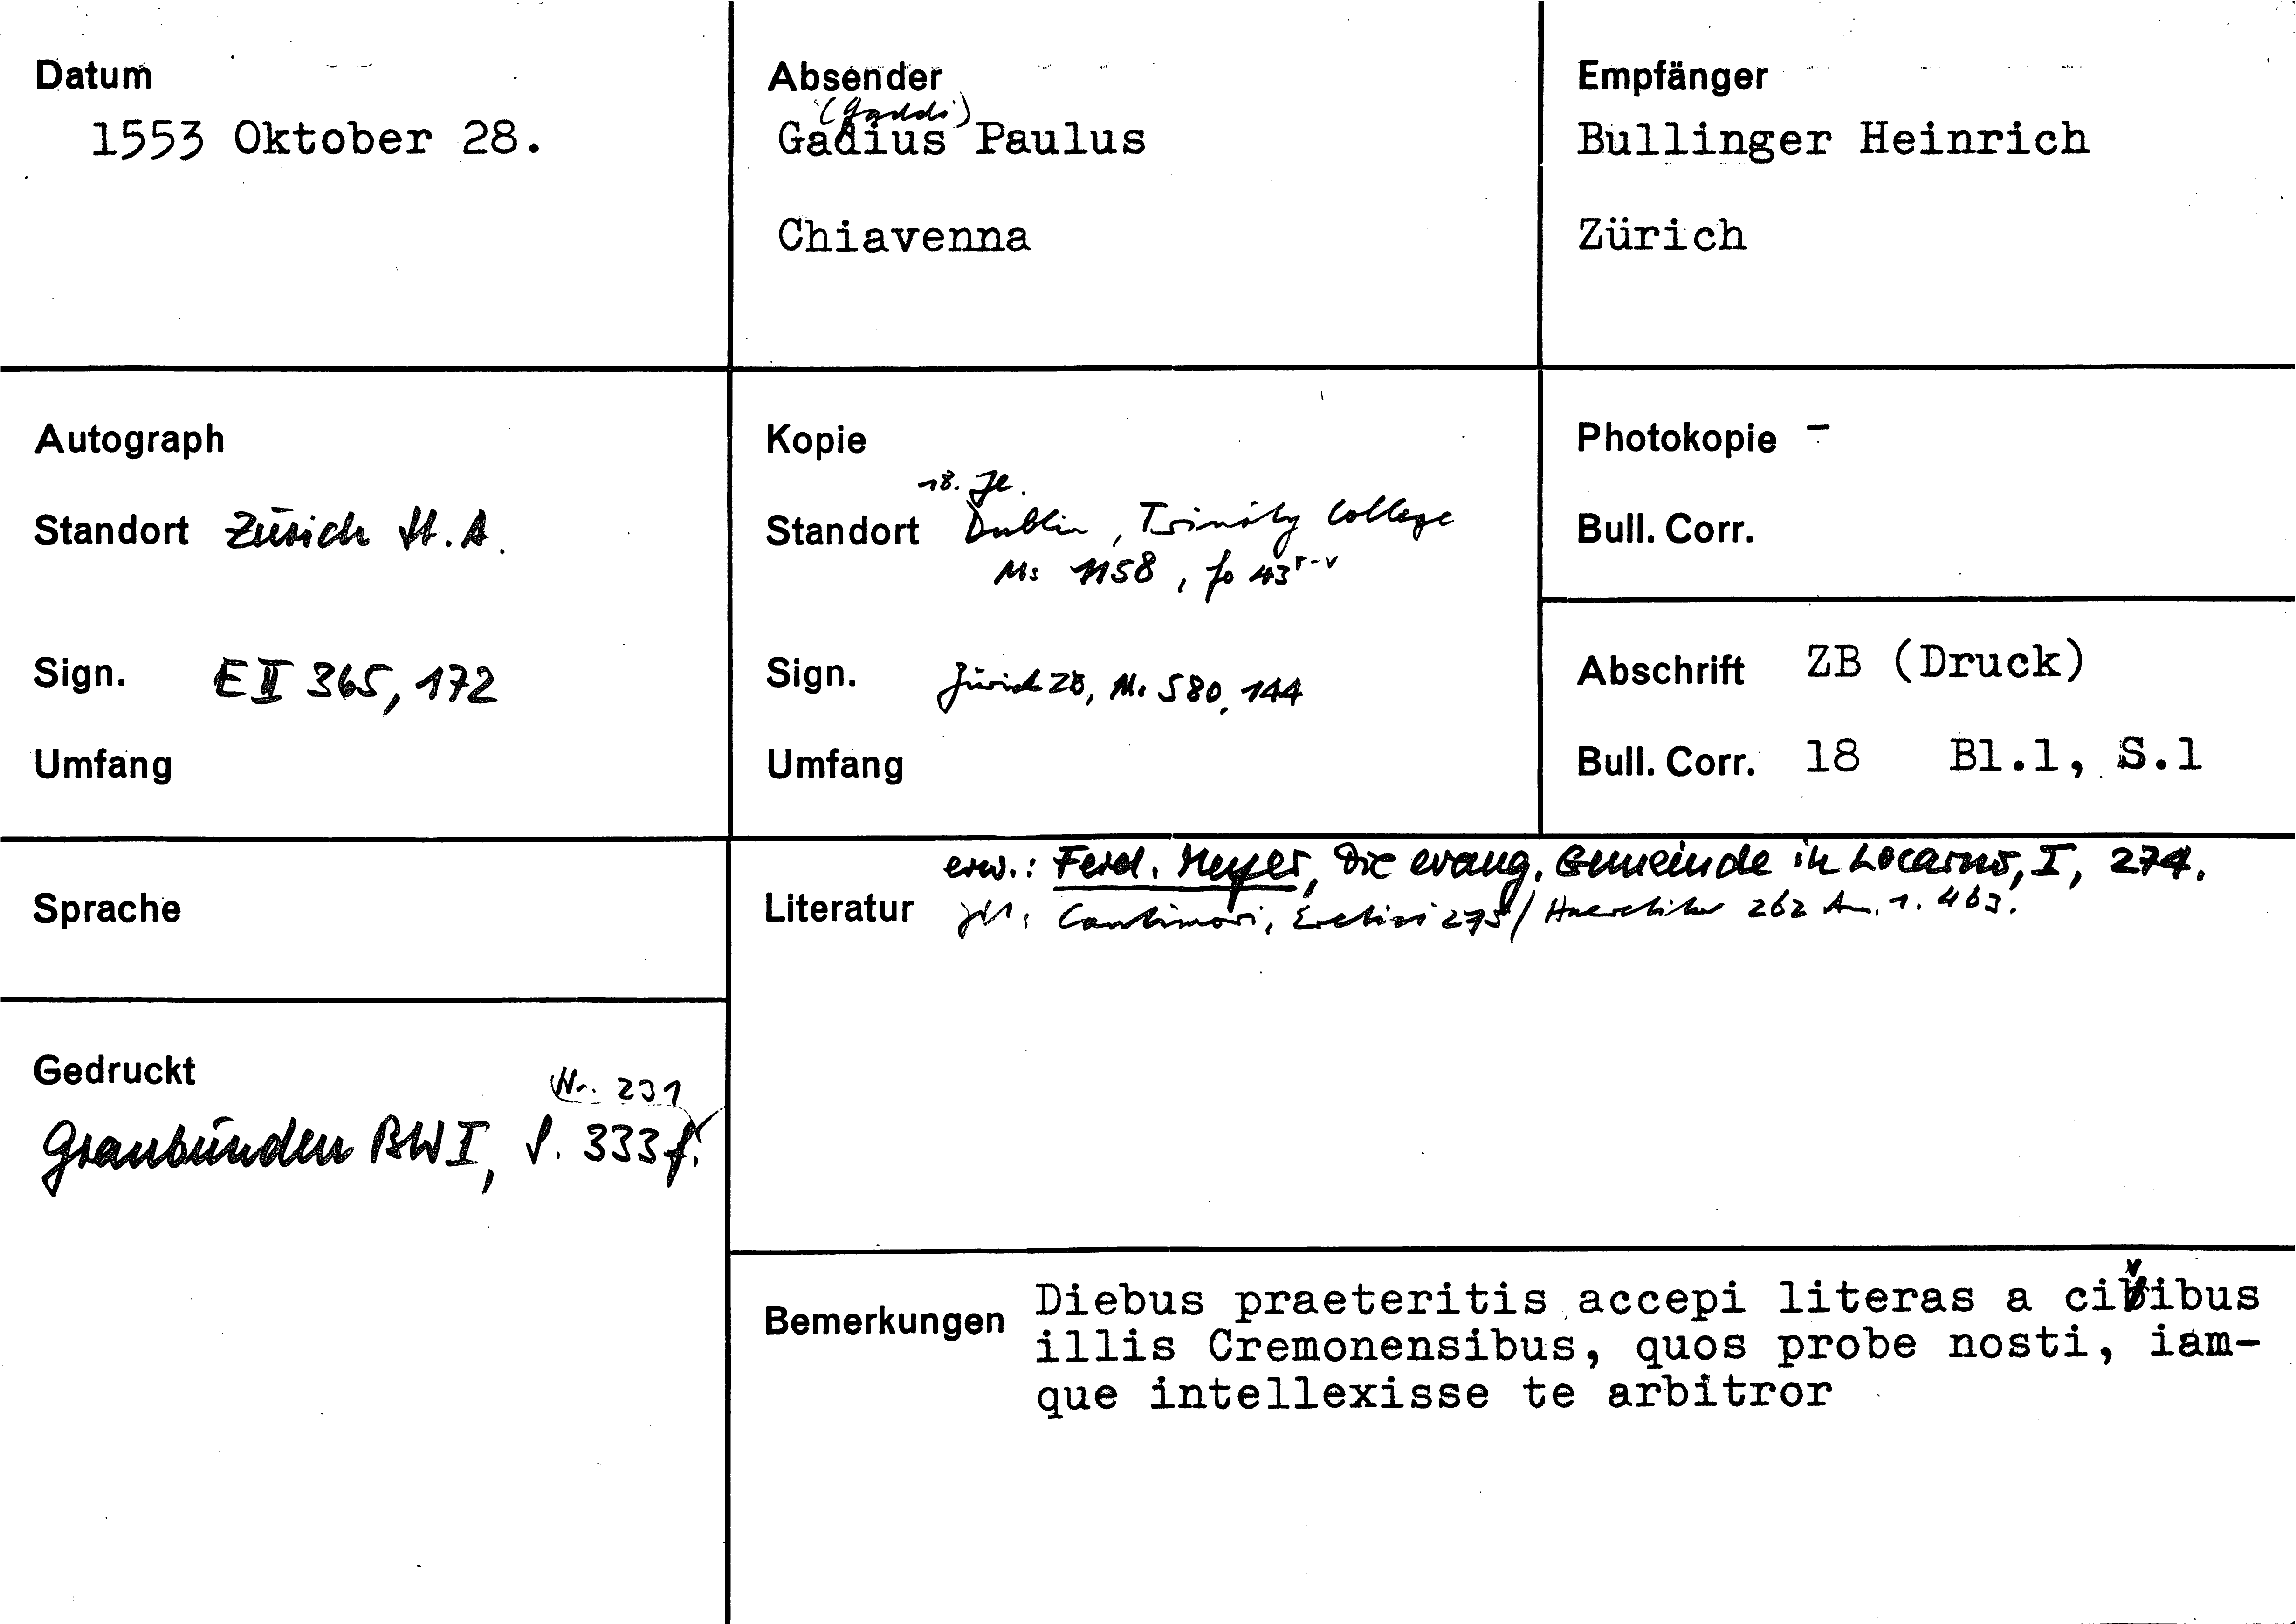 Datum
1553 Oktober 28.
Absender
(Gaddi)
Gadius Paulus
Chiavenna
Empfänger
Bullinger Heinrich
Zürich
Autograph
Standort Zürich St.A.
Sign. E II 365, 172
Umfang
Kopie
18. Jh.
Standort Dublin, Trinity College
Ms 1158, fo 43 r-v
Sign. Zürich ZB, Ms S 80, 144
Umfang
Photokopie -
Bull. Corr.
Abschrift ZB (Druck)
Bull. Corr. 18 Bl.1, S.1
Sprache
Gedruckt
Nr. 231
Graubünden BW I, S. 333 f.
erw.: Ferd. Meyer, Die evang. Gemeinde in Locarno, I, 274.
Literatur zit.: Cantimori, Eretici 275 / Haeretiker 262 An. 1. 463.
Bemerkungen Diebus praeteritis accepi literas a civibus
illis Cremonensibus, quos probe nosti, iam-
que intellexisse te arbitror